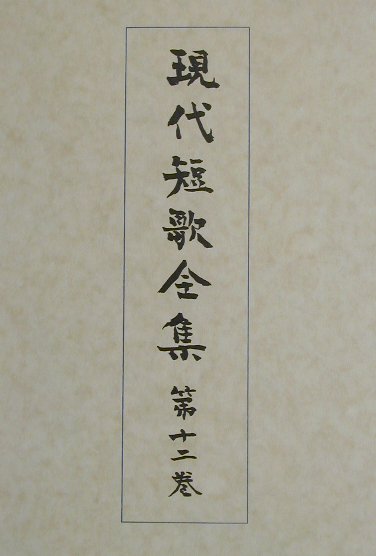 現代短歌全集 第十二巻